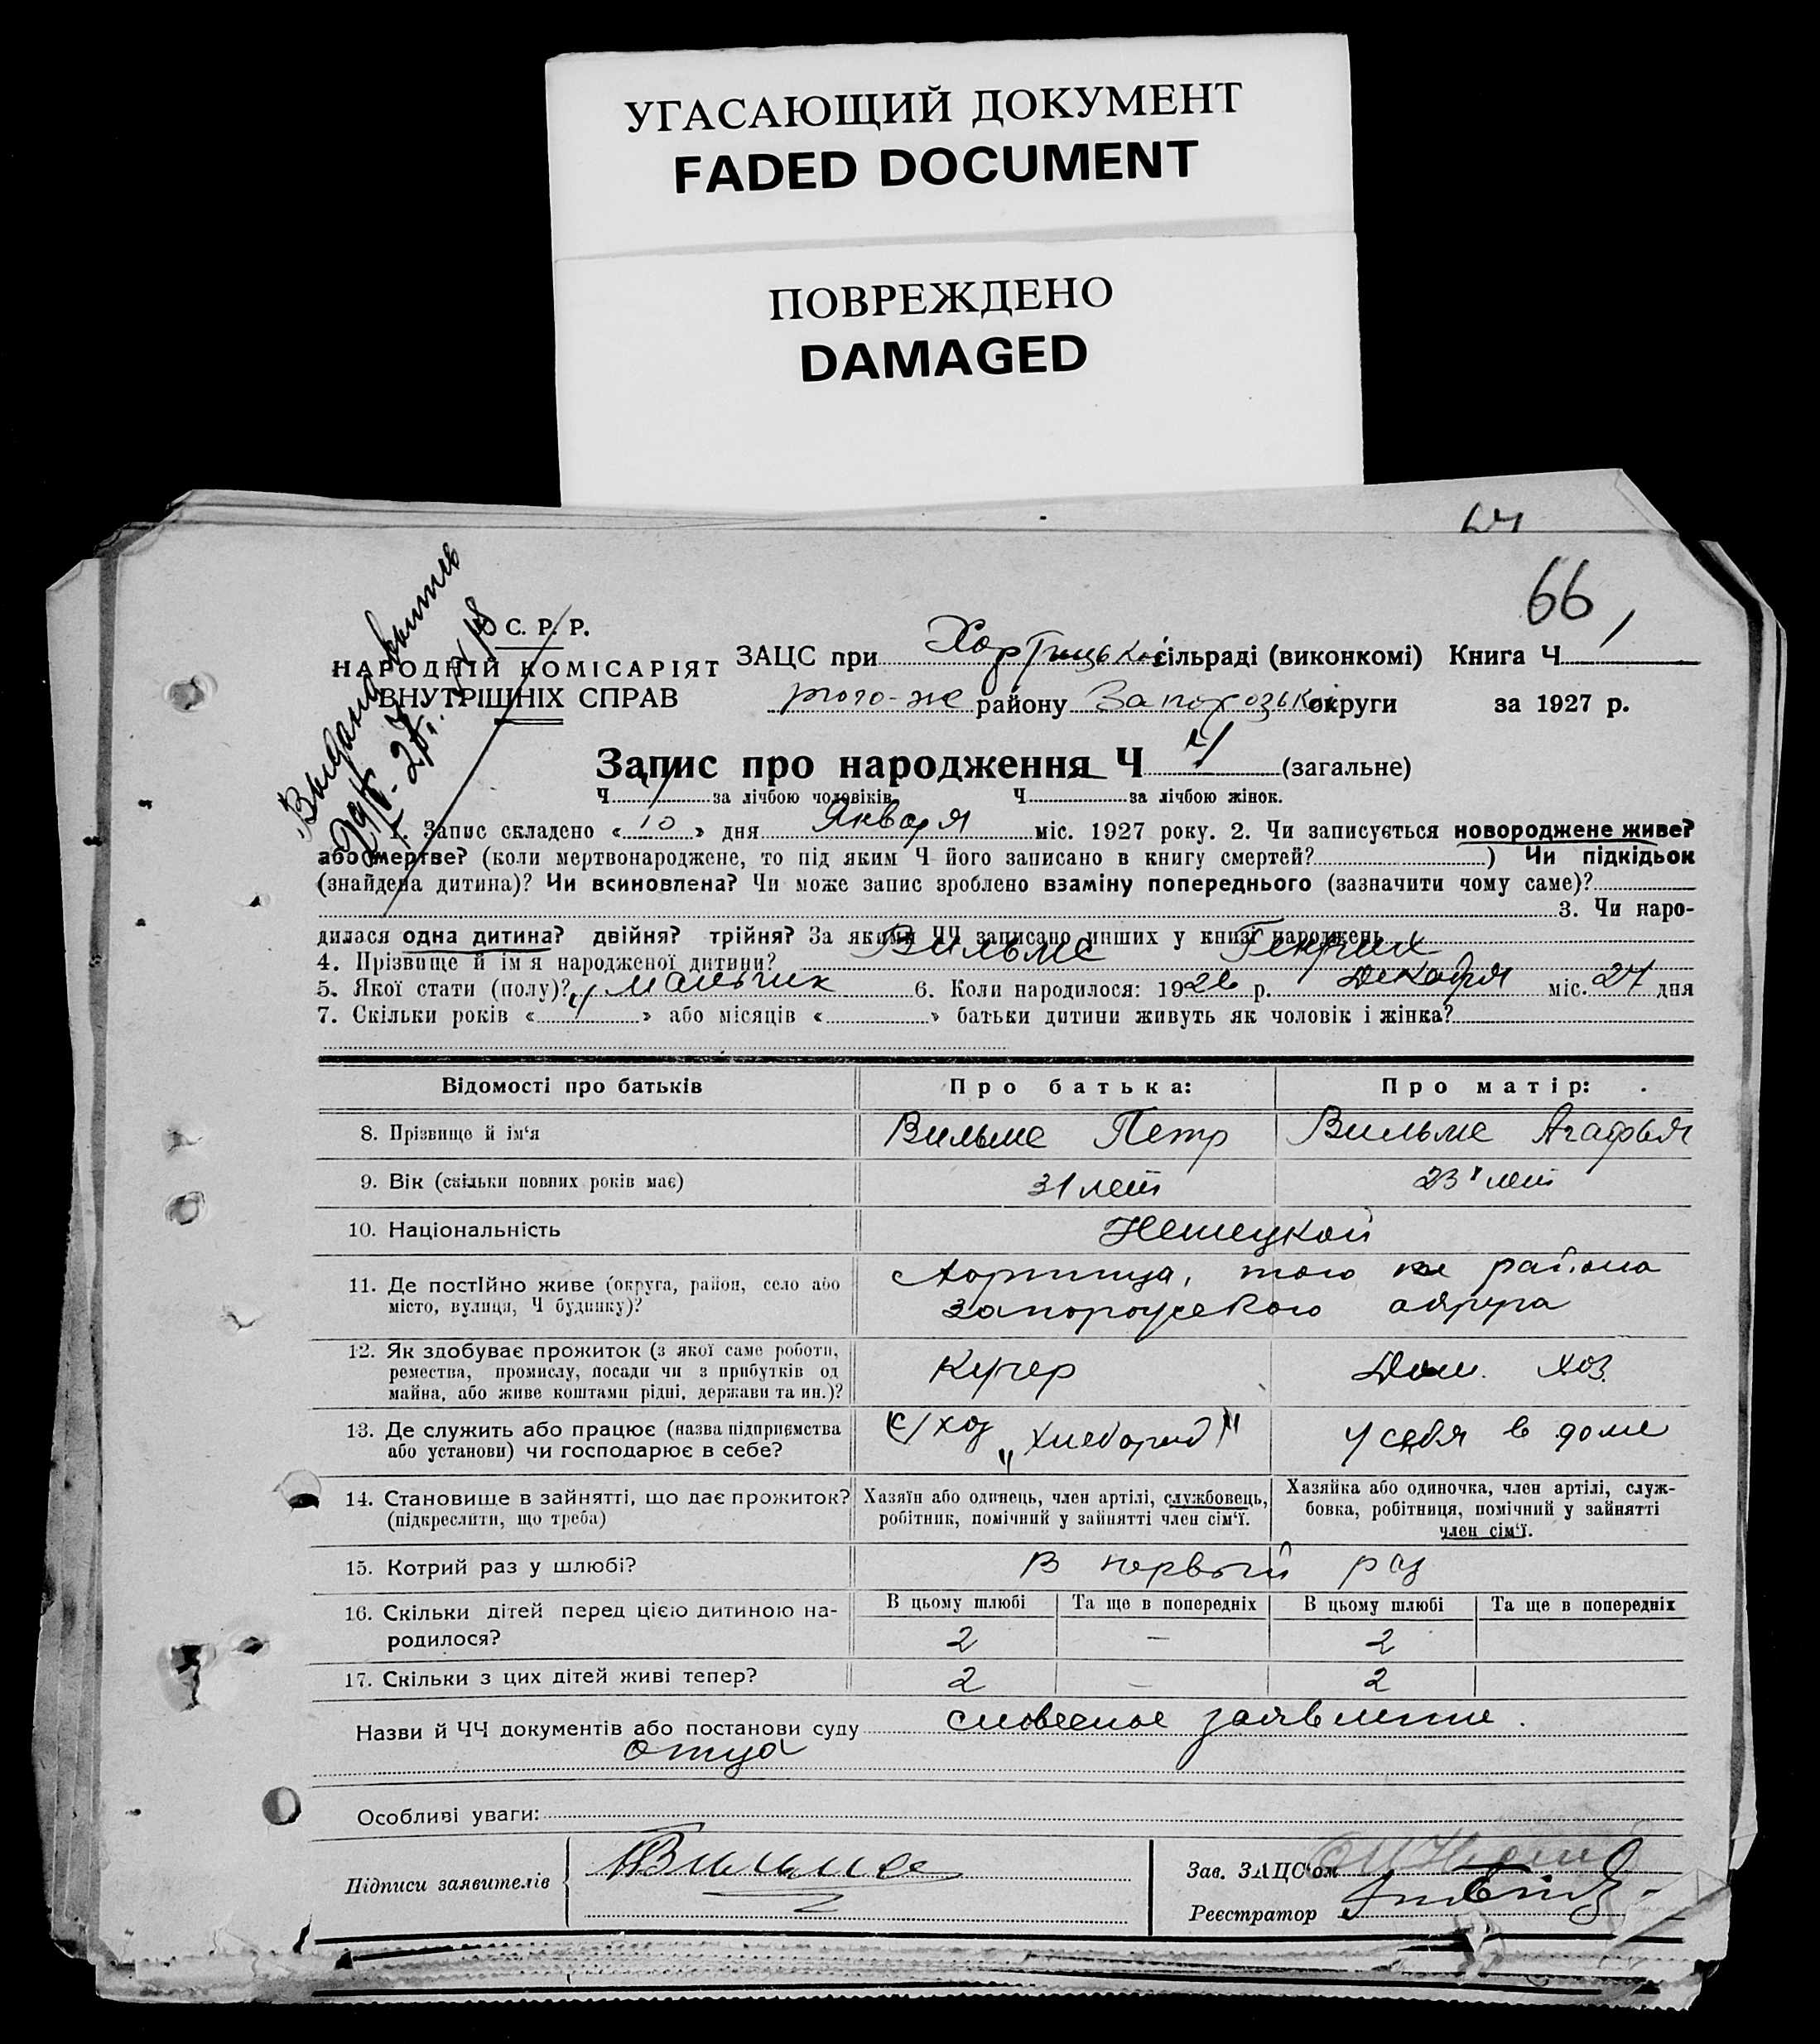 УГАСАЮЩИЙ ДОКУМЕНТ
FADED DOCUMENT
ПОВРЕЖДЕНО
DAMAGED
66
С. Р. Р.
НАРОДНІЙ КОМІСАРІЯТ
ВНУТРІШНІХ СПРАВ
ЗАЦС при Хортицькой сільраді (виконкомі) Книга Ч. 1
того-же району Запорозькой округи за 1927 р.
Запис про народження Ч 4 (загальне)
Ч. за лічбою чоловіків Ч. за лічбою жінок.
1. Запис складено « 10 » дня Января міс. 1927 року. 2. Чи записується новороджене живе?
або мертве? (коли мертвонароджене, то під яким Ч його записано в книгу смертей? ) Чи підкідьок
(знайдена дитина)? Чи всиновлена? Чи може запис зроблено взаміну попереднього (зазначити чому саме)?
3. Чи наро-
дилася одна дитина? двійня? трійня? За якими ЧЧ записано инших у книзі народжень
4. Прізвище й ім'я народженої дитини? Вильмс Генрих
5. Якої стати (полу)? мальчик 6. Коли народилося: 1926 р. Декабря міс. 27 дня
7. Скільки років « 4 » або місяців « » батьки дитини живуть як чоловік і жінка?
Відомості про батьків Про батька: Про матір:
8. Прізвище й ім'я Вильмс Петр Вильмс Агафья
9. Вік (скільки повних років має) 31 лет 23 лет
10. Національність Немецкой
11. Де постійно живе (округа, район, село або Хортица, того же района
місто, вулиця, Ч будинку)? Запорожского округа
12. Як здобуває прожиток (з якої саме роботи,
ремества, промислу, посади чи з прибутків од Кучер Дом. хоз.
майна, або живе коштами рідні, держави та ин.)?
13. Де служить або працює (назва підприємства с/хоз „Хлебороб" у себя в доме
або установи) чи господарює в себе?
14. Становище в зайнятті, що дає прожиток? Хазяїн або одинець, член артілі, службовець, Хазяйка або одиночка, член артілі, служ-
(підкреслити, що треба) робітник, помічний у зайнятті член сім'ї. бовка, робітниця, помічний у зайнятті
член сім'ї.
15. Котрий раз у шлюбі? В первый раз
16. Скільки дітей перед цією дитиною на- В цьому шлюбі Та ще в попередніх В цьому шлюбі Та ще в попередніх
родилося? 2 – 2
17. Скільки з цих дітей живі тепер? 2 – 2
Назви й ЧЧ документів або постанови суду словесное заявление
отца
Особливі уваги:
Підписи заявителів Вильмс
Зав. ЗАЦС'ом
Реєстратор